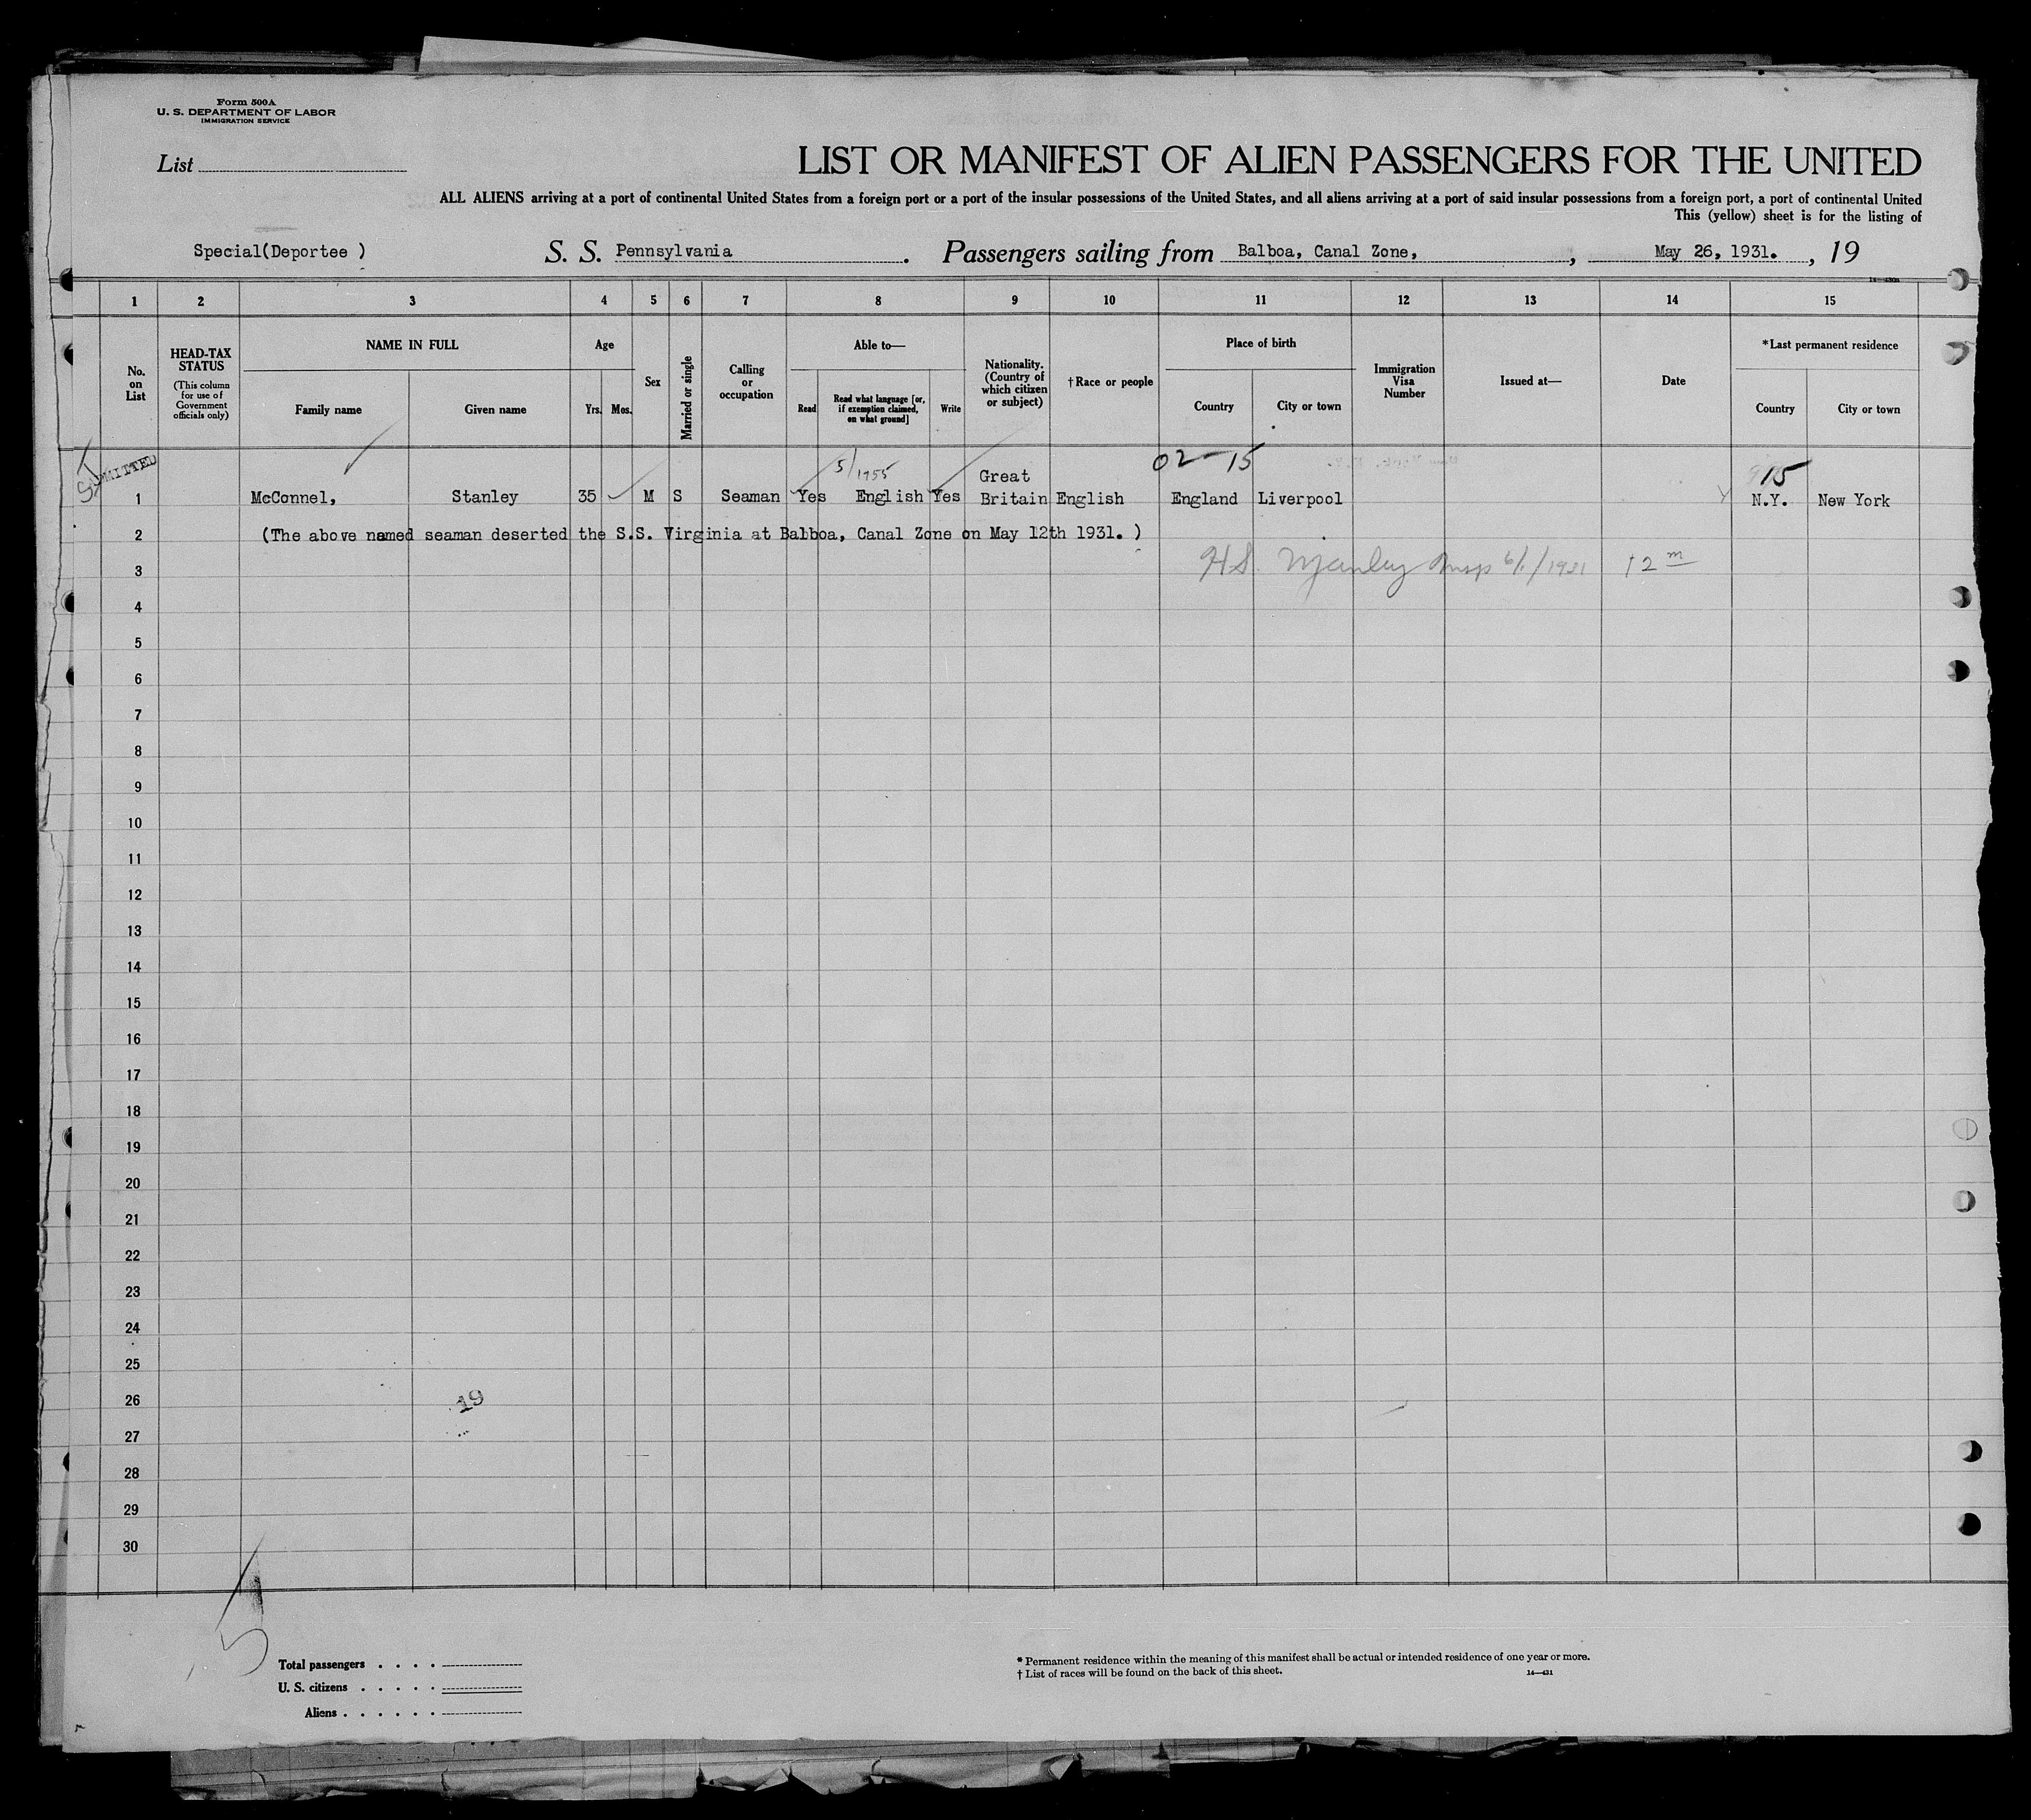 Form 500A
U. S. DEPARTMENT OF LABOR
IMMIGRATION SERVICE
List
LIST OR MANIFEST OF ALIEN PASSENGERS FOR THE UNITED
ALL ALIENS arriving at a port of continental United States from a foreign port or a port of the insular possessions of the United States, and all aliens arriving at a port of said insular possessions from a foreign port, a port of continental United
This (yellow) sheet is for the listing of
Special(Deportee ) S. S. Pennsylvania . Passengers sailing from Balboa, Canal Zone, , May 26, 1931. , 19
1 2 3 4 5 6 7 8 9 10 11 12 13 14 15
No. on List
HEAD-TAX STATUS
(This column for use of Government officials only)
NAME IN FULL
Family name
Given name
Age
Yrs.
Mos.
Sex
Married or single
Calling or occupation
Able to—
Read
Read what language [or, if exemption claimed, on what ground]
Write
Nationality. (Country of which citizen or subject)
†Race or people
Place of birth
Country
City or town
Immigration Visa Number
Issued at—
Date
*Last permanent residence
Country
City or town
ADMITTED
5/1955
02-15
15
1 McConnel, Stanley 35 M S Seaman Yes English Yes Great Britain English England Liverpool N.Y. New York
2 (The above named seaman deserted the S.S. Virginia at Balboa, Canal Zone on May 12th 1931. )
3 H.S. Manley Insp 6/1/1931 12 m
4
5
6
7
8
9
10
11
12
13
14
15
16
17
18
19
20
21
22
23
24
25
26
19
27
28
29
30
5
Total passengers . . . .
U. S. citizens . . . . .
Aliens . . . . . .
* Permanent residence within the meaning of this manifest shall be actual or intended residence of one year or more.
† List of races will be found on the back of this sheet.
14—431